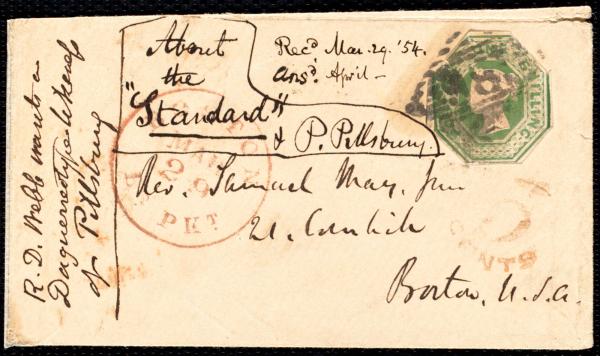 About
the
"Standard"
& P. Pillsbury.
Recd. Mar. 29. '54.
Ansd. April –
R. D. Webb wants a
Daguerreotype likeness
of Pillsbury
Rev. Samuel May, Jun
21. Cornhill
Boston, U.S.A.
BOSTON
MAR
29
PKT
SHILLING
CENTS